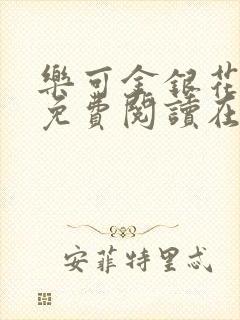 樂可金銀花
免費閱讀在
安菲特里忒